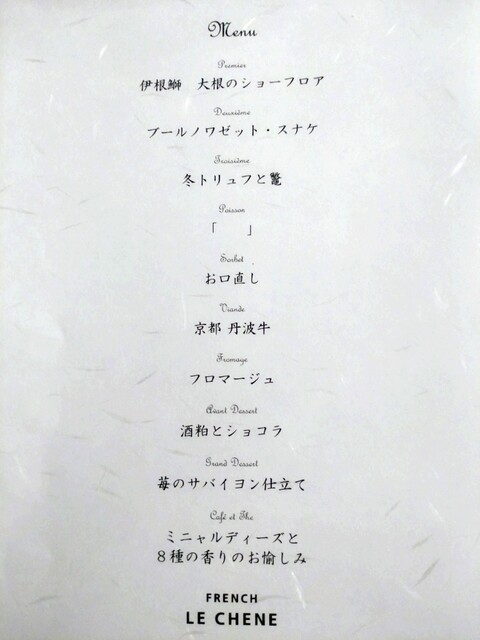 Menu
Premier
伊根鰤 大根のショーフロア
Deuxième
ブールノワゼット・スナケ
Troisième
冬トリュフと鼈
Poisson
「　　」
Sorbet
お口直し
Viande
京都 丹波牛
Fromage
フロマージュ
Avant Dessert
酒粕とショコラ
Grand Dessert
苺のサバイヨン仕立て
Café et The
ミニャルディーズと
８種の香りのお愉しみ
FRENCH
LE CHENE